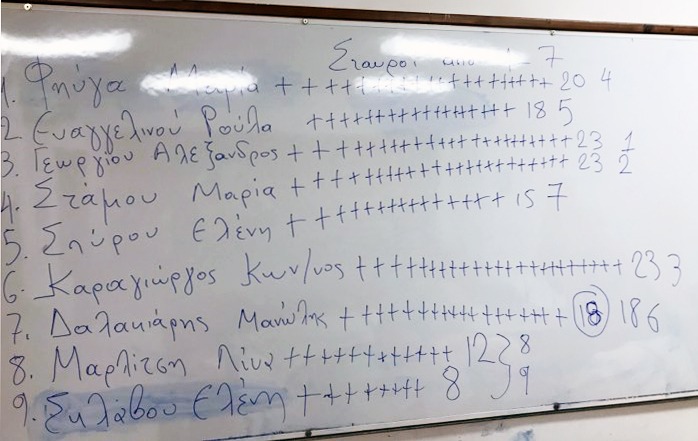 Σταυροί 7
1. Φηύγα Μαρία + + + + + + + + + + + + + + + + + + + + 20 4
2 Ευαγγελινού Ρούλα + + + + + + + + + + + + + + + + + + 18 5
3. Γεωργίου Αλέξανδρος + + + + + + + + + + + + + + + + + + + + + + + 23 1
4. Στάμου Μαρία + + + + + + + + + + + + + + + + + + + + + + + 23 2
5. Σπύρου Ελένη + + + + + + + + + + + + + + + 15 7
6. Καραγιώργος Κων/νος + + + + + + + + + + + + + + + + + + + + + + + 23 3
7. Δαλακιάρης Μανώλης + + + + + + + + + + + + + + + + + + 18 18 6
8. Μαρλίτση Λίνα + + + + + + + + + + + + 12 8
9. Σκλάβου Ελένη + + + + + + + + 8 9